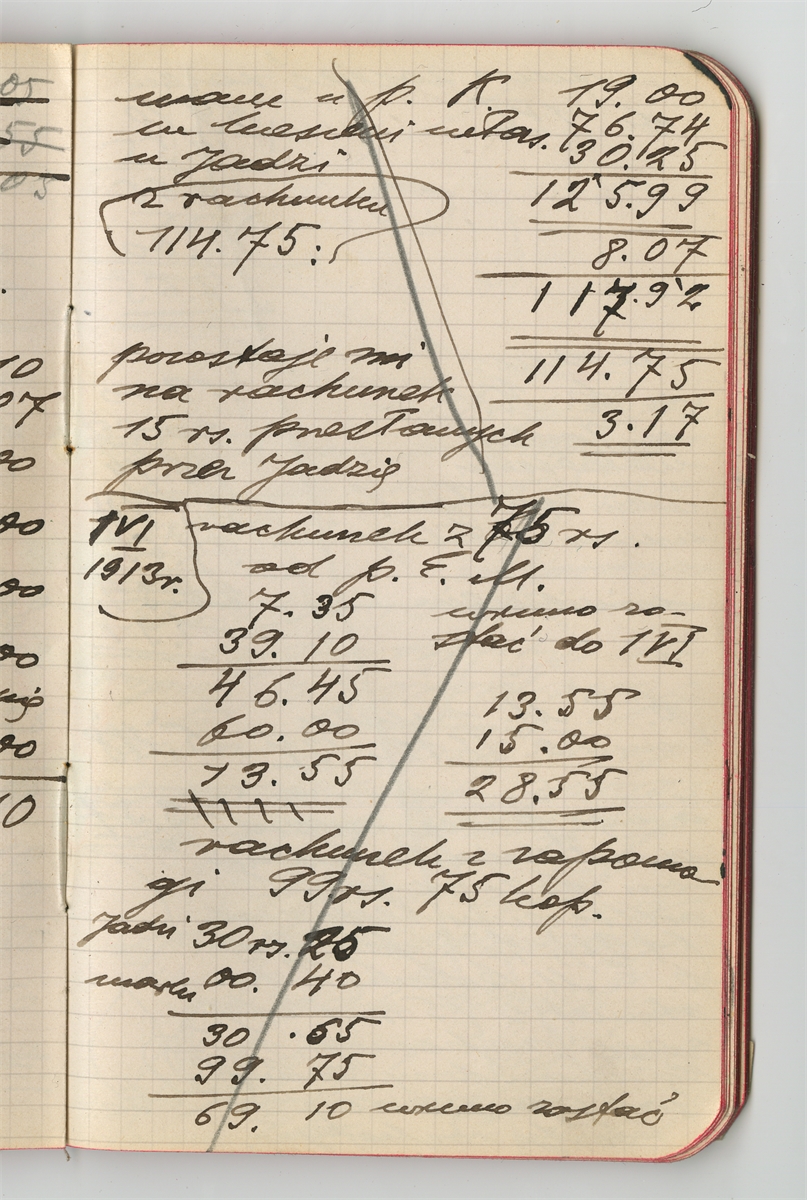 05
55
05
10
07
00
00
00
00
00
10
mam u p. K. 19.00
w kieszeni włas. 76.74
u Jadzi 30.25
125.99
z rachunku
114.75:
8.07
117.92
pozostaje mi
114.75
na rachunek
15 rs. przesłanych 3.17
przez Jadzię
1 VI
1913 r.
rachunek z 75 rs.
od p. E. M.
7.35
39.10
46.45
60.00
13.55
winno zo-
stać do 1 VI
13.55
15.00
28.55
rachunek z zapomo
gi 99 rs. 75 kop.
Jadzi 30 rs. 25
marki 00. 40
30.65
99.75
69.10 winno zostać